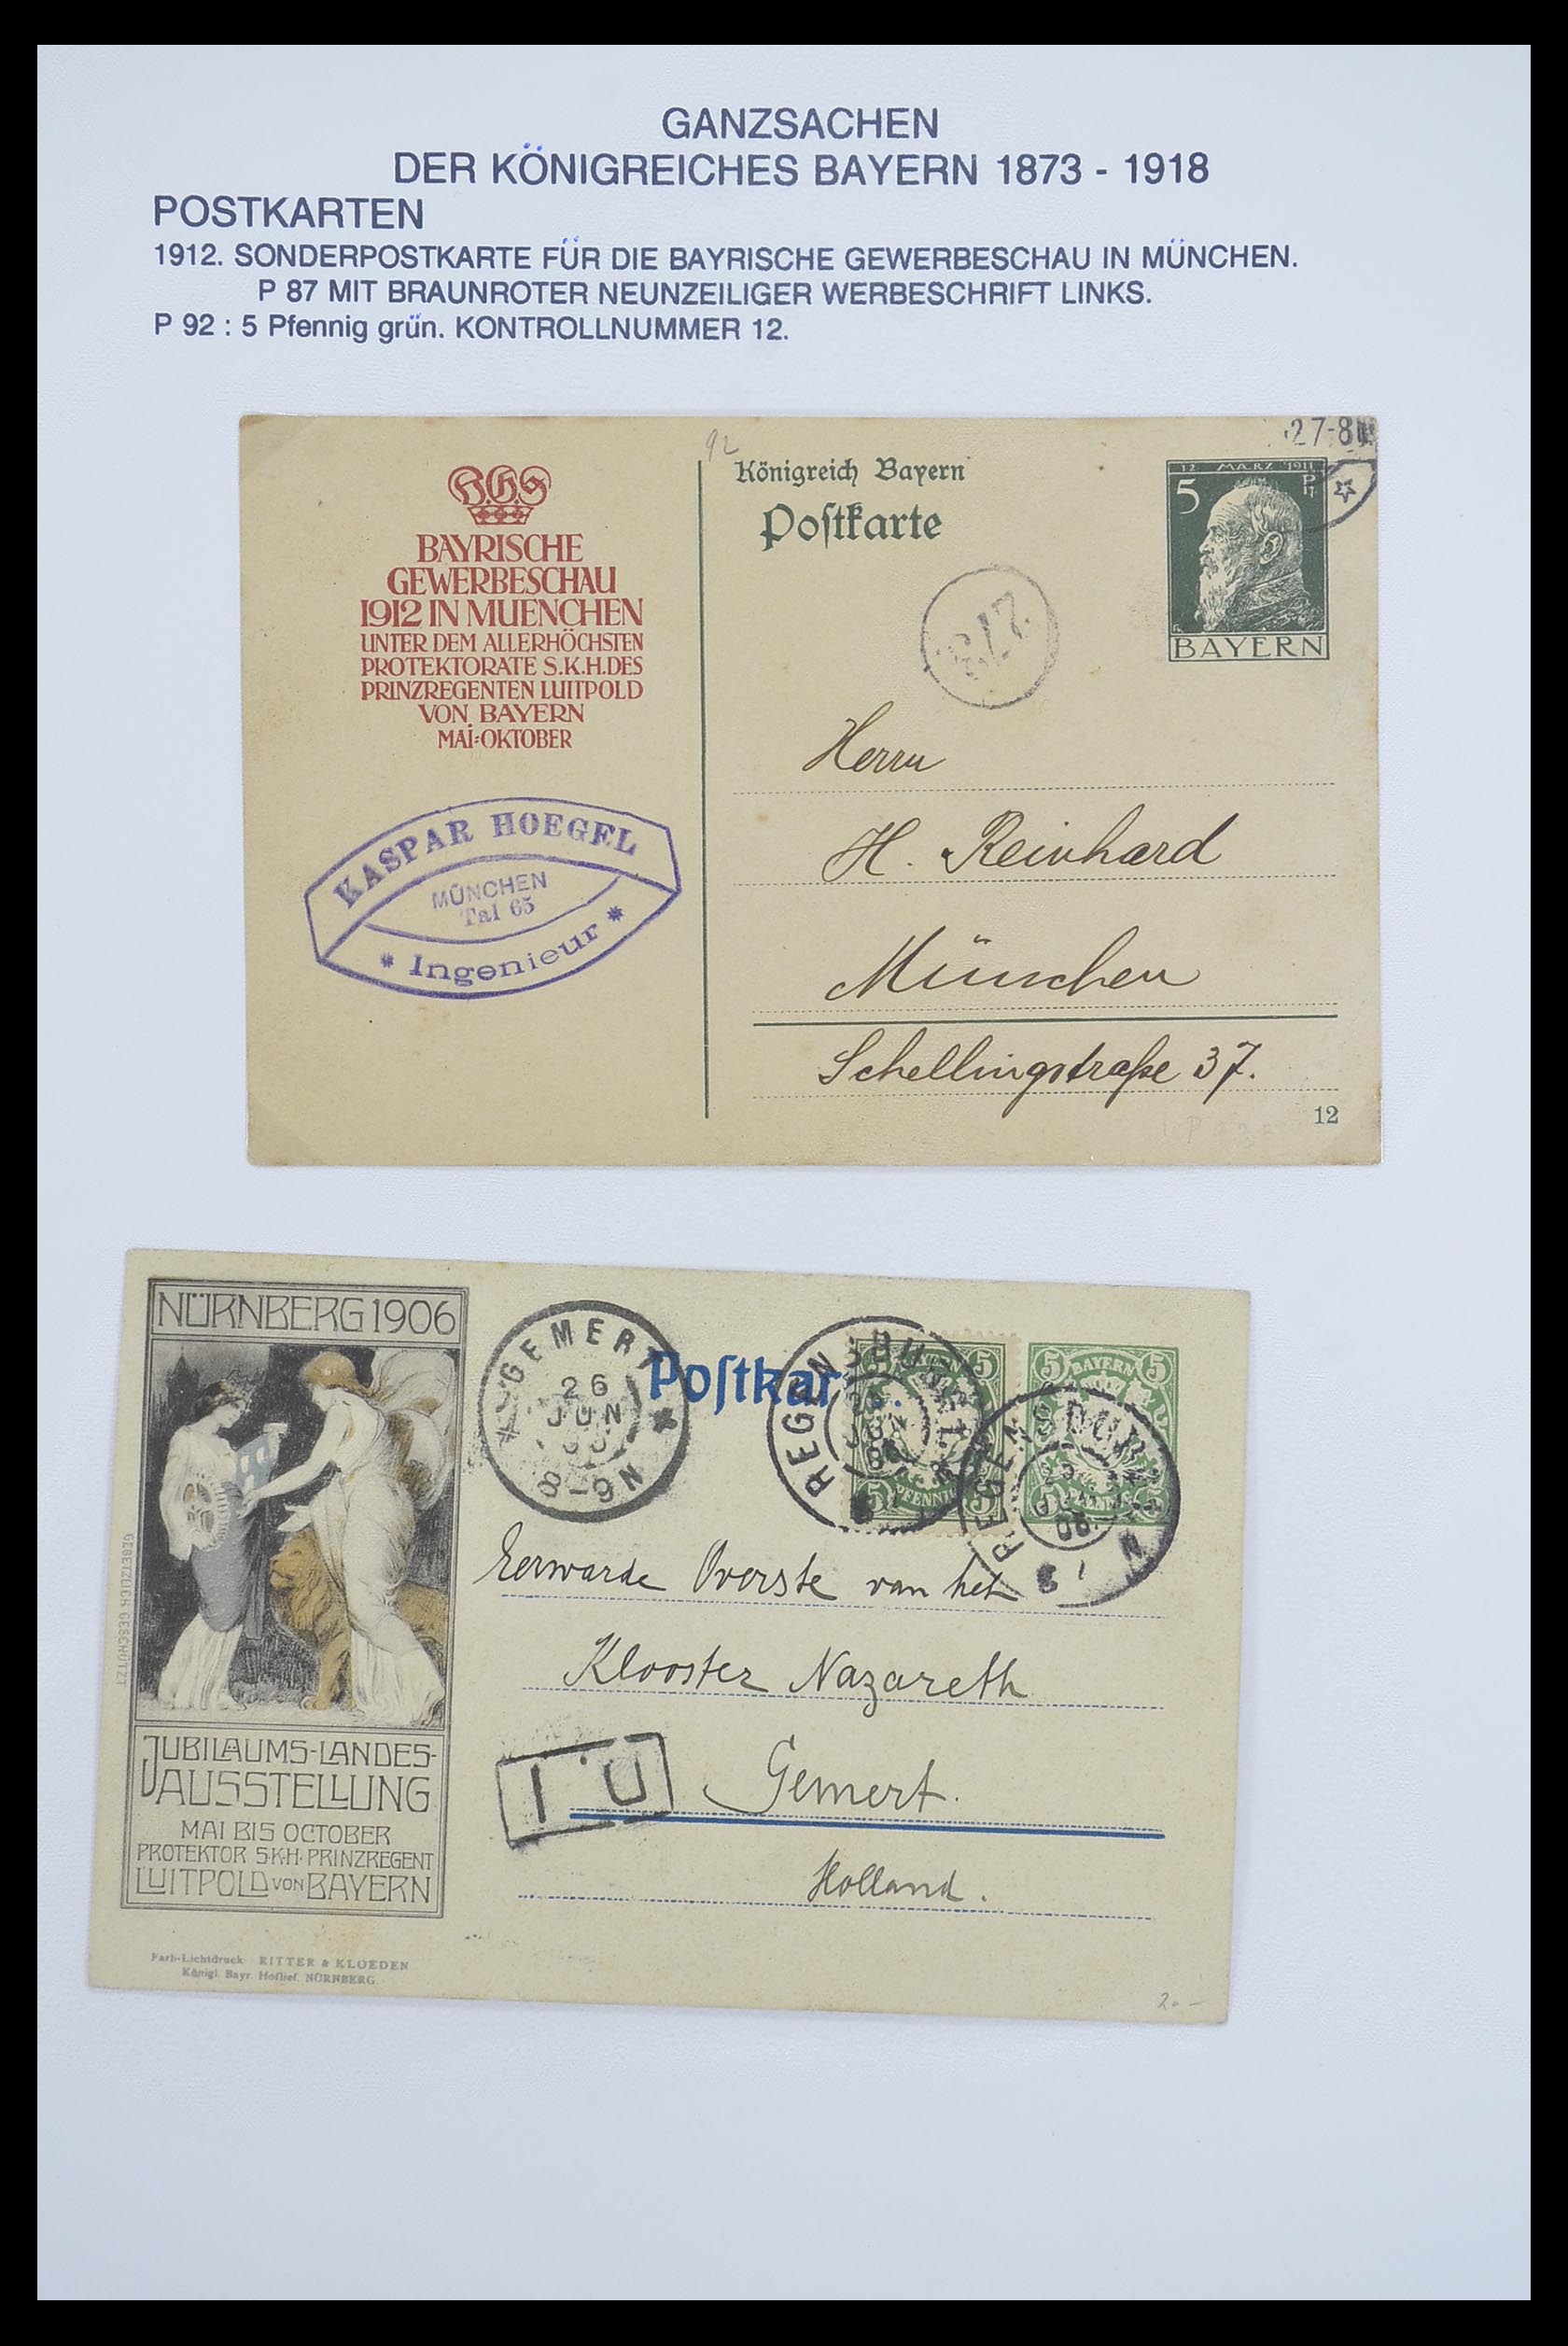 GANZSACHEN
DER KÖNIGREICHES BAYERN 1873 - 1918
POSTKARTEN
1912. SONDERPOSTKARTE FÜR DIE BAYRISCHE GEWERBESCHAU IN MÜNCHEN.
P 87 MIT BRAUNROTER NEUNZEILIGER WERBESCHRIFT LINKS.
P 92 : 5 Pfennig grün. KONTROLLNUMMER 12.
92
27-8
BAYRISCHE
GEWERBESCHAU
1912 IN MUENCHEN
UNTER DEM ALLERHÖCHSTEN
PROTEKTORATE S.K.H.DES
PRINZREGENTEN LUITPOLD
VON BAYERN
MAI=OKTOBER
KASPAR HOEGEL
MÜNCHEN
Tal 65
* Ingenieur *
Königreich Bayern
Poſtkarte
12 MARZ 1911
5 Pf
BAYERN
Herrn
H. Reinhard
München
Schellingstraße 37.
12
NÜRNBERG 1906
GESETZLICH GESCHÜTZT
JUBILÄUMS-LANDES-
AUSSTELLUNG
MAI BIS OCTOBER
PROTEKTOR S.K.H. PRINZREGENT
LUITPOLD VON BAYERN
Farb-Lichtdruck RITTER & KLOEDEN
Königl. Bayr. Hoflief. NÜRNBERG.
GEMERT
26
JUN
8-9N
Poſtkar
REGENSBURG
5 BAYERN 5
5 PFENNIG 5
REGENSBURG
5 BAYERN 5
Eerwarde Overste van het
Klooster Nazareth
Gemert.
Holland.
20-